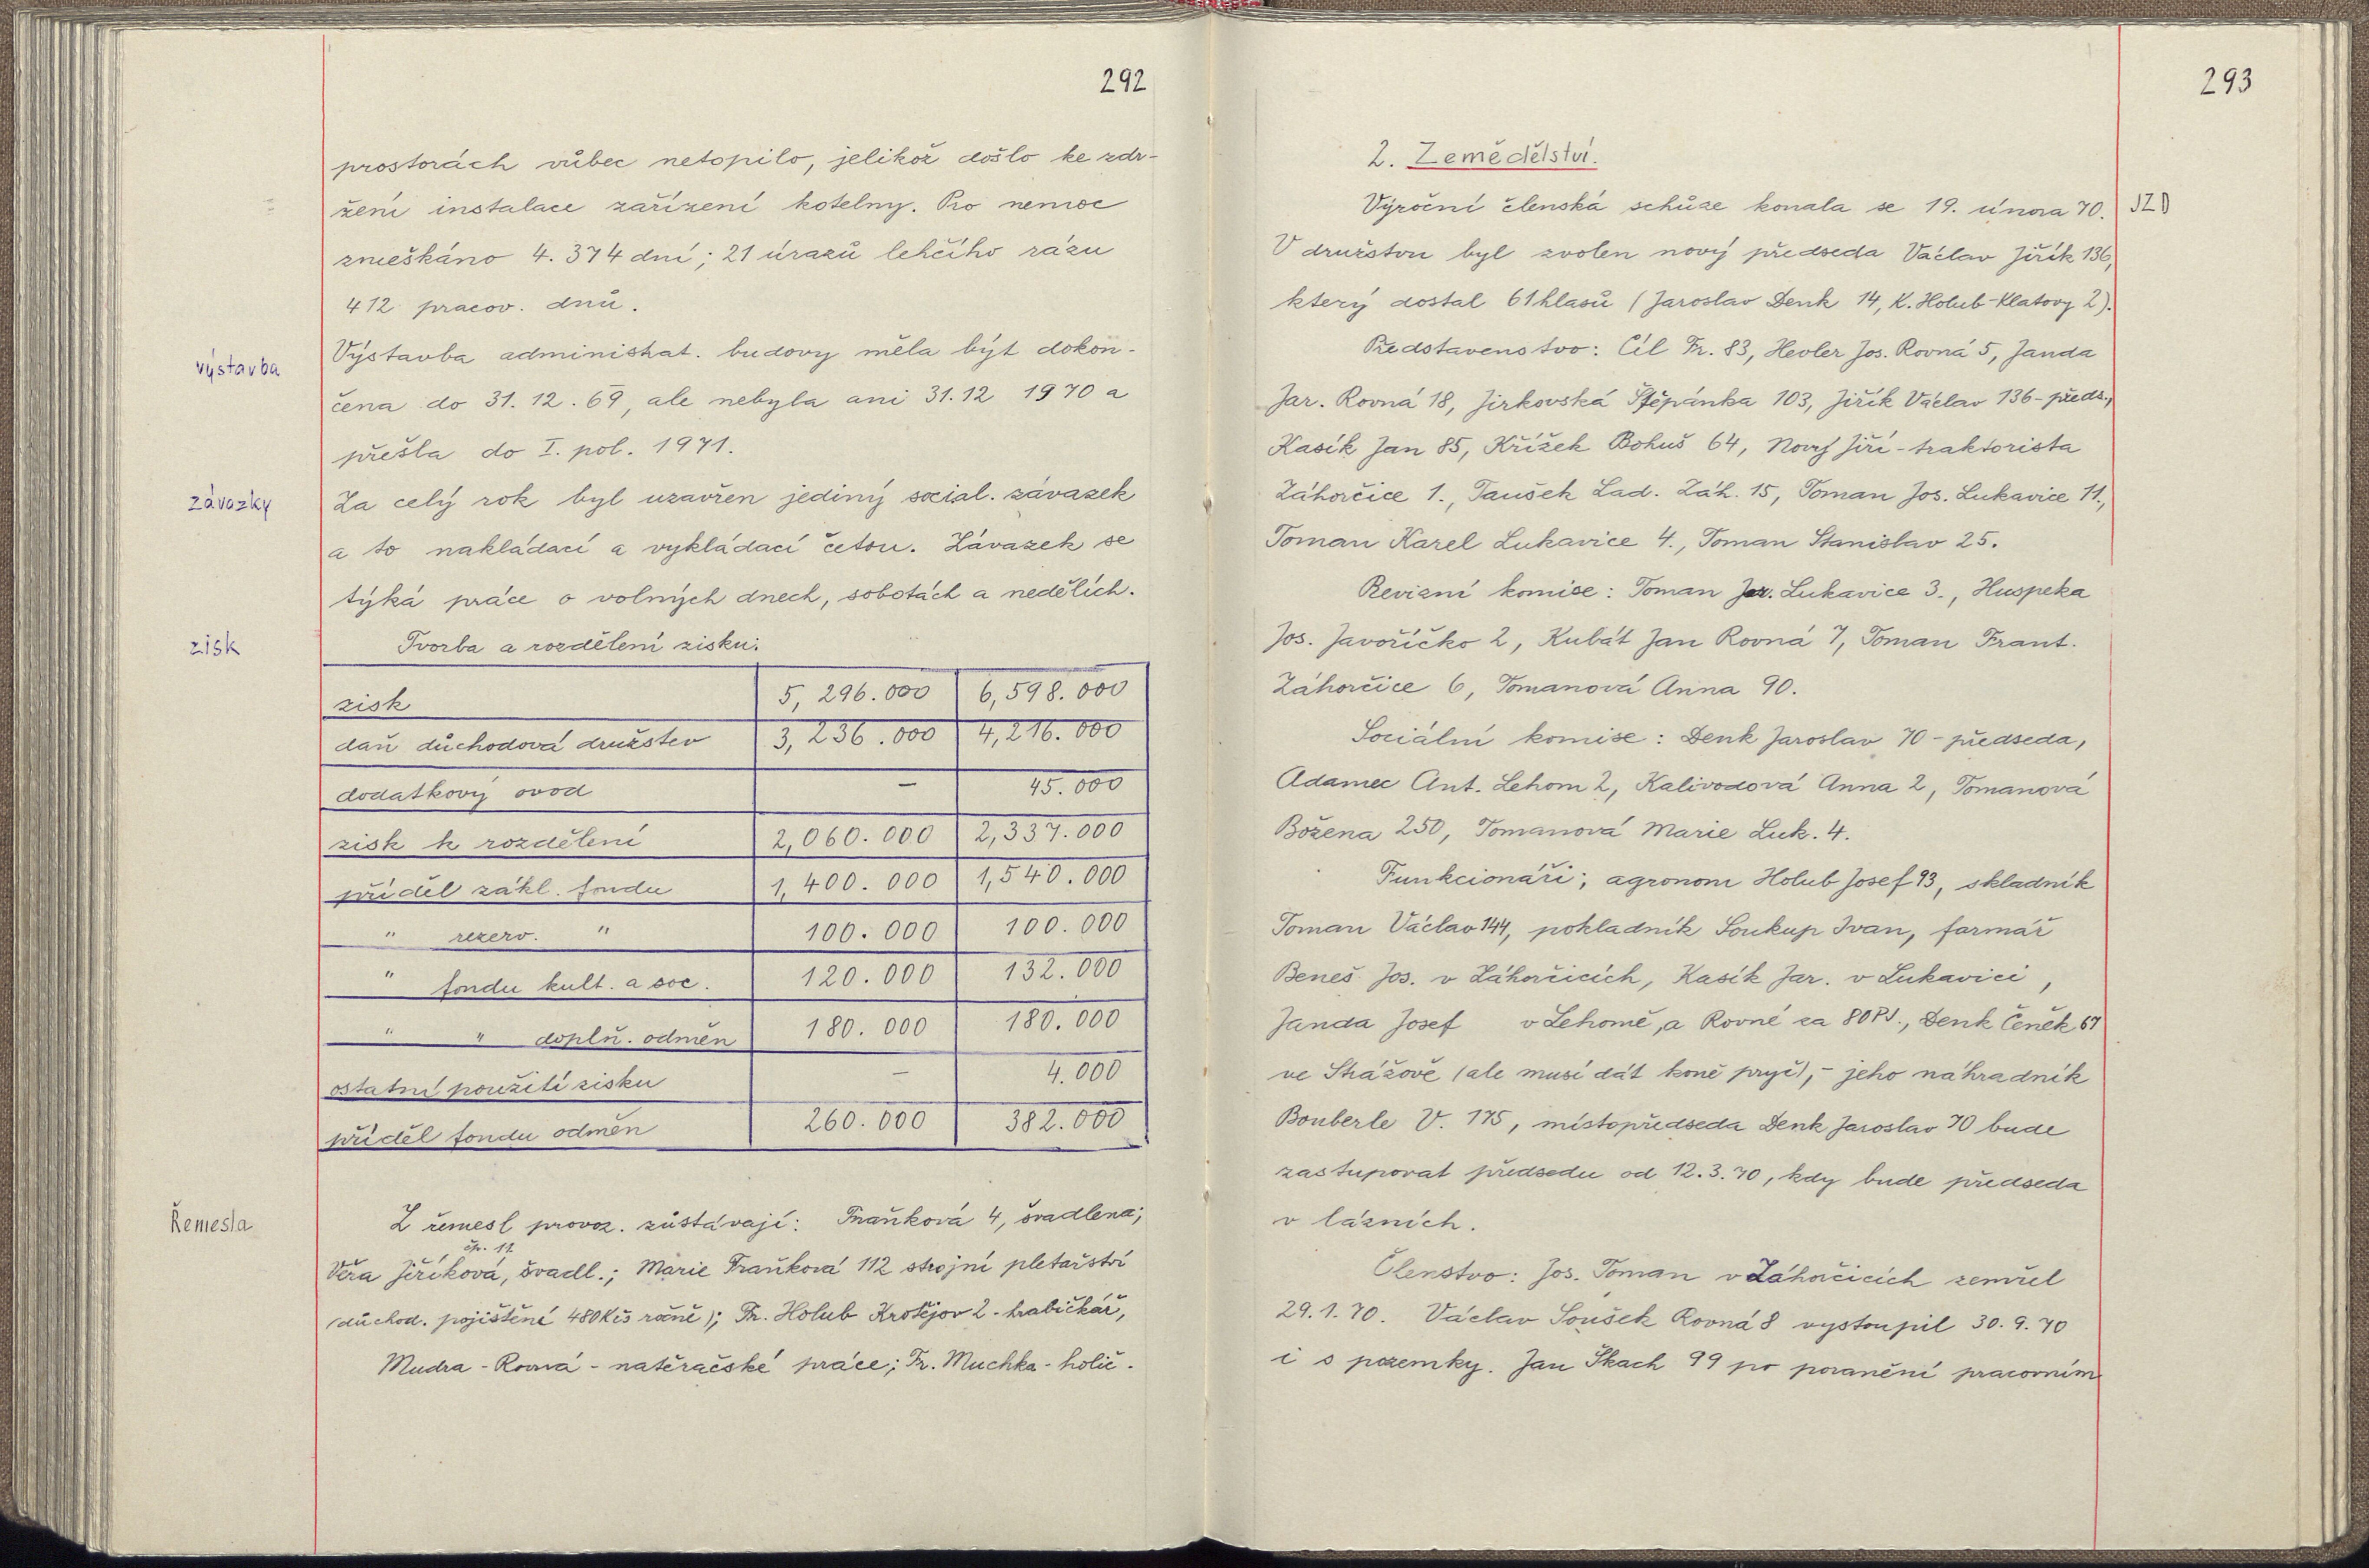 292
prostorách vůbec netopilo, jelikož došlo ke zdr-
žení instalace zařízení kotelny. Pro nemoc
zmeškáno 4.374 dní; 21 úrazů lehčího rázu
412 pracov. dnů.
výstavba
Výstavba administrat. budovy měla být dokon-
čena do 31.12.69, ale nebyla ani 31.12 1970 a
přešla do I. pol. 1971.
závazky
Za celý rok byl uzavřen jediný social. závazek
a to nakládací a vykládací četou. Závazek se
týká práce o volných dnech, sobotách a nedělích.
zisk
Tvorba a rozdělení zisku:
zisk 5,296.000 6,598.000
daň důchodová družstev 3,236.000 4,216.000
dodatkový ovod – 45.000
zisk k rozdělení 2,060.000 2,337.000
příděl zákl. fondu 1,400.000 1,540.000
" rezerv. " 100.000 100.000
" fondu kult. a soc. 120.000 132.000
" " doplň. odměn 180.000 180.000
ostatní použití zisku – 4.000
příděl fondu odměn 260.000 382.000
Řemesla
Z řemesl provoz. zůstávají: Fraňková 4, švadlena;
čp. 11
Věra Jiříková, švadl.; Marie Fraňková 112 strojní pletařství
(důchod. pojištění 480Kčs ročně); Fr. Holub Krotějov 2 - hrabičkář,
Mudra - Rovná - natěračské práce; Fr. Muchka - holič.
293
2. Zemědělství.
JZD
Výroční členská schůze konala se 19. února 70.
V družstvu byl zvolen nový předseda Václav Jiřík 136,
který dostal 61 hlasů (Jaroslav Denk 14, K. Holub-Klatovy 2).
Představenstvo: Cíl Fr. 83, Hevler Jos. Rovná 5, Janda
Jar. Rovná 18, Jirkovská Štěpánka 103, Jiřík Václav 136 - předs.,
Kasík Jan 85, Křížek Bohuš 64, Nový Jiří - traktorista
Záhorčice 1., Taušek Lad. Záh. 15, Toman Jos. Lukavice 11.,
Toman Karel Lukavice 4., Toman Stanislav 25.
Revizní komise: Toman Lukavice 3., Huspeka
Jos. Javoříčko 2, Kubát Jan Rovná 7, Toman Frant.
Záhorčice 6, Tomanová Anna 90.
Sociální komise: Denk Jaroslav 70 - předseda,
Adamec Ant. Lehom 2, Kalivodová Anna 2, Tomanová
Božena 250, Tomanová Marie Luk. 4.
Funkcionáři; agronom Holub Josef 93, skladník
Toman Václav 144, pokladník Soukup Ivan, farmář
Beneš Jos. v Záhorčicích, Kasík Jar. v Lukavici,
Janda Josef v Lehomě, a Rovné za 80 PJ., Denk Čeněk 67
ve Strážově (ale musí dát koně pryč), - jeho náhradník
Bouberle V. 175, místopředseda Denk Jaroslav 70 bude
zastupovat předsedu od 12.3.70, kdy bude předseda
v lázních.
Členstvo: Jos. Toman v Záhorčicích zemřel
29.1.70. Václav Soušek Rovná 8 vystoupil 30.9.70
i s pozemky. Jan Škach 99 po poranění pracovním